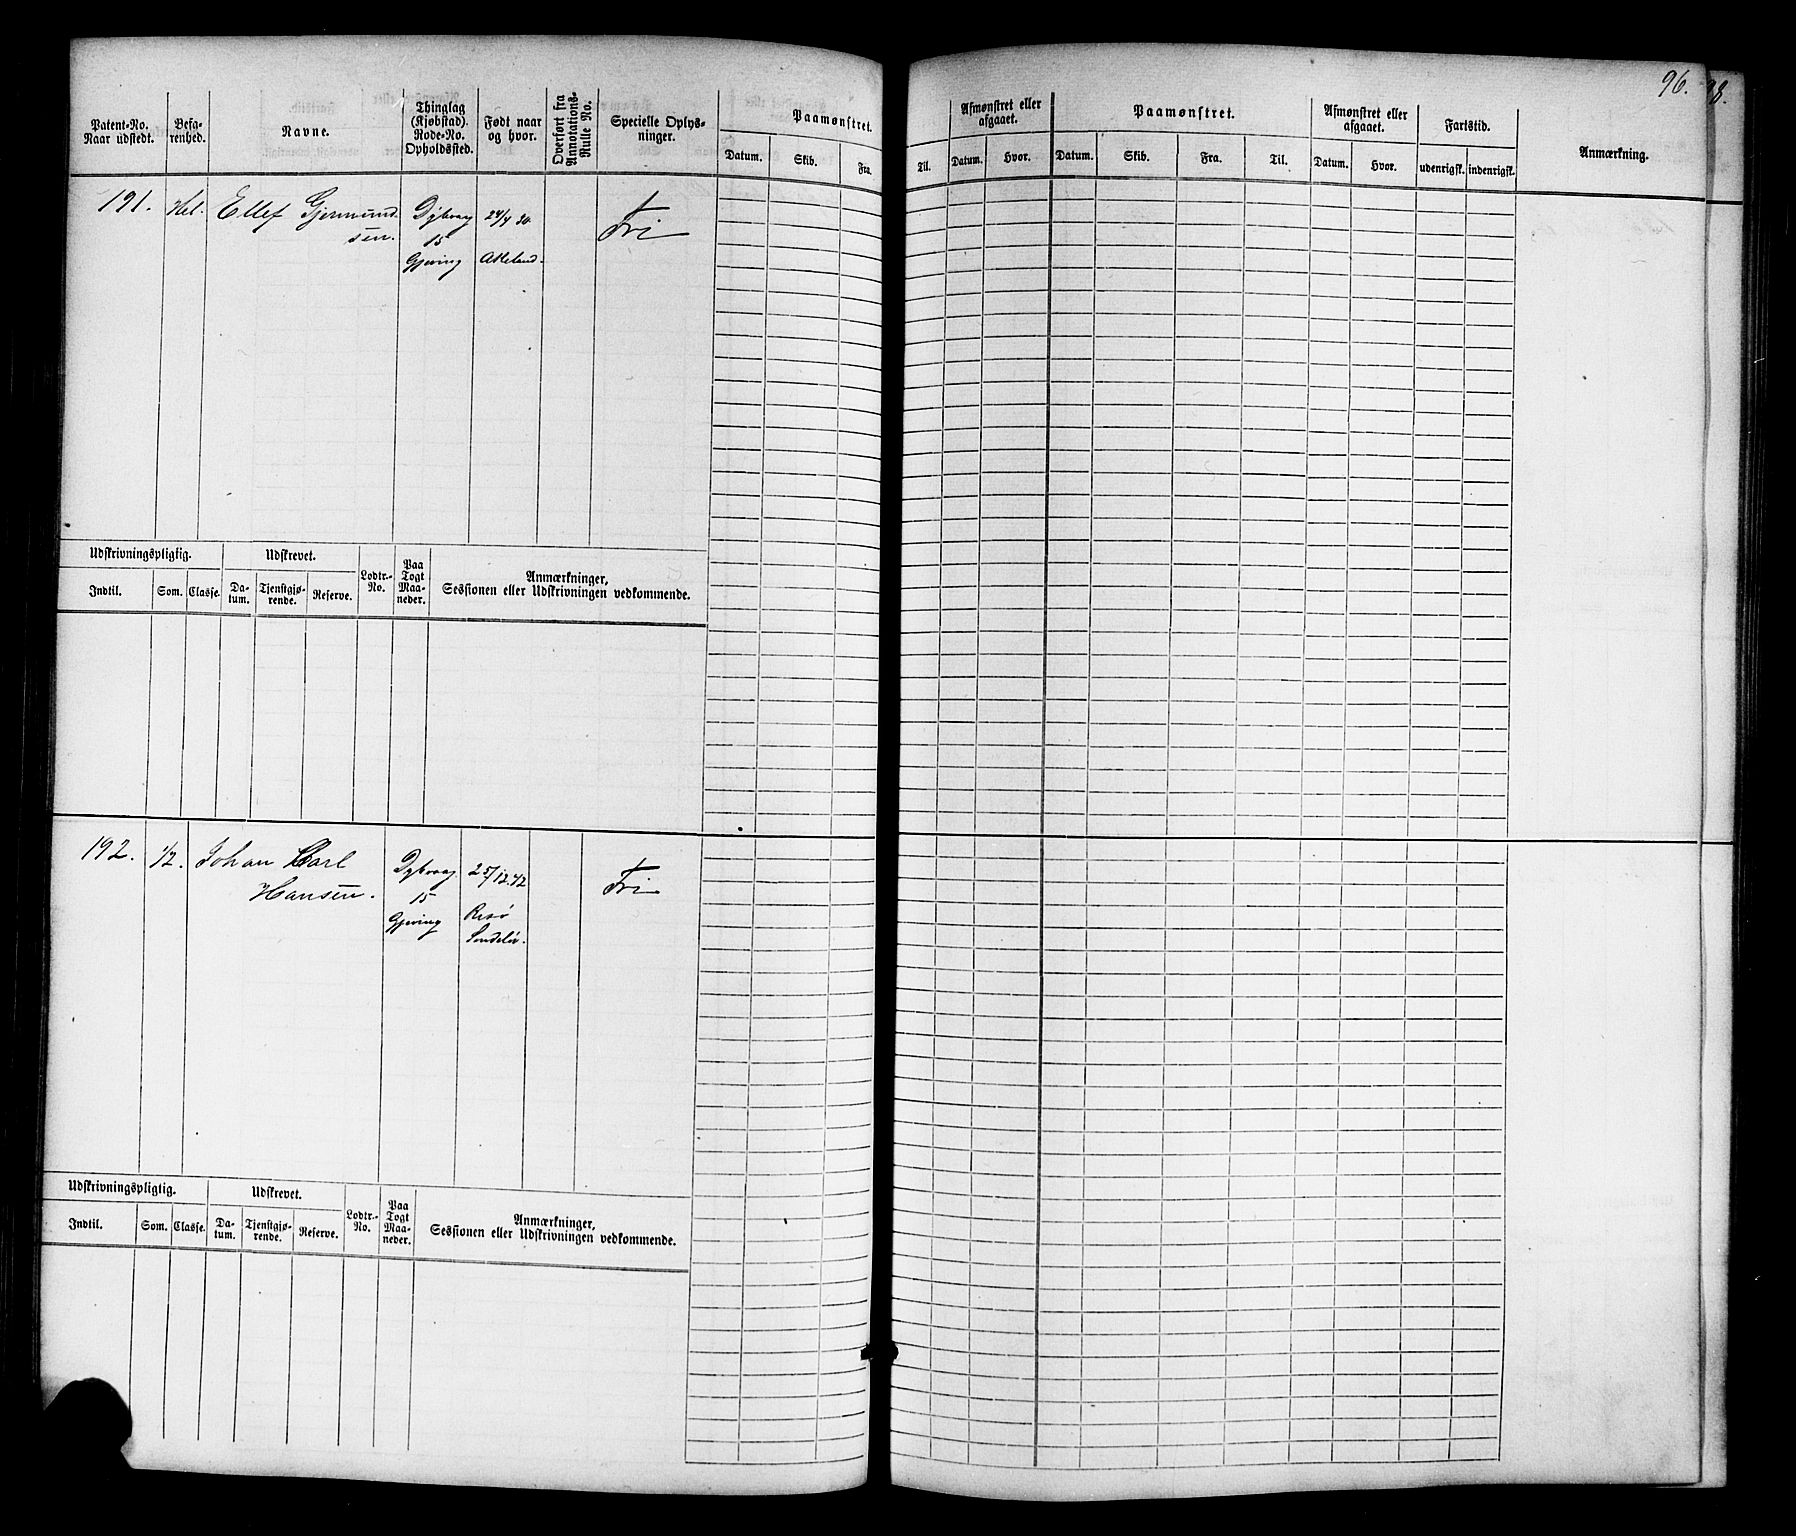 96.
98.
Patent-No. Naar udstedt.
Befarenhed.
Navne.
Thinglag (Kjøbstad). Rode-No. Opholdssted.
Født naar og hvor.
Overført fra Annotations-Rulle No.
Specielle Oplysninger.
Paamønstret.
Datum. Skib. Fra.
Til.
Afmønstret eller afgaaet.
Datum. Hvor.
Paamønstret.
Datum. Skib. Fra. Til.
Afmønstret eller afgaaet.
Datum. Hvor.
Fartstid.
udenrigsk. indenrigsk.
Anmærkning.
191. Hel. Ellef Gjermund
sen.
Dybvaag
15
Gjeving
24/4 30
Akeland.
Fri
Udskrivningspligtig. Udskrevet.
Indtil. Som. Classe. Datum. Tjenstgjørende. Reserve.
Lodtr.-No.
Paa Togt Maaneder.
Anmærkninger,
Sessionen eller Udskrivningen vedkommende.
192. 1/2. Johan Carl
Hansen.
Dybvaag
15
Gjeving
25/12.42
Risø
Søndeløv.
Fri
Udskrivningspligtig. Udskrevet.
Indtil. Som. Classe. Datum. Tjenstgjørende. Reserve.
Lodtr.-No.
Paa Togt Maaneder.
Anmærkninger,
Sessionen eller Udskrivningen vedkommende.